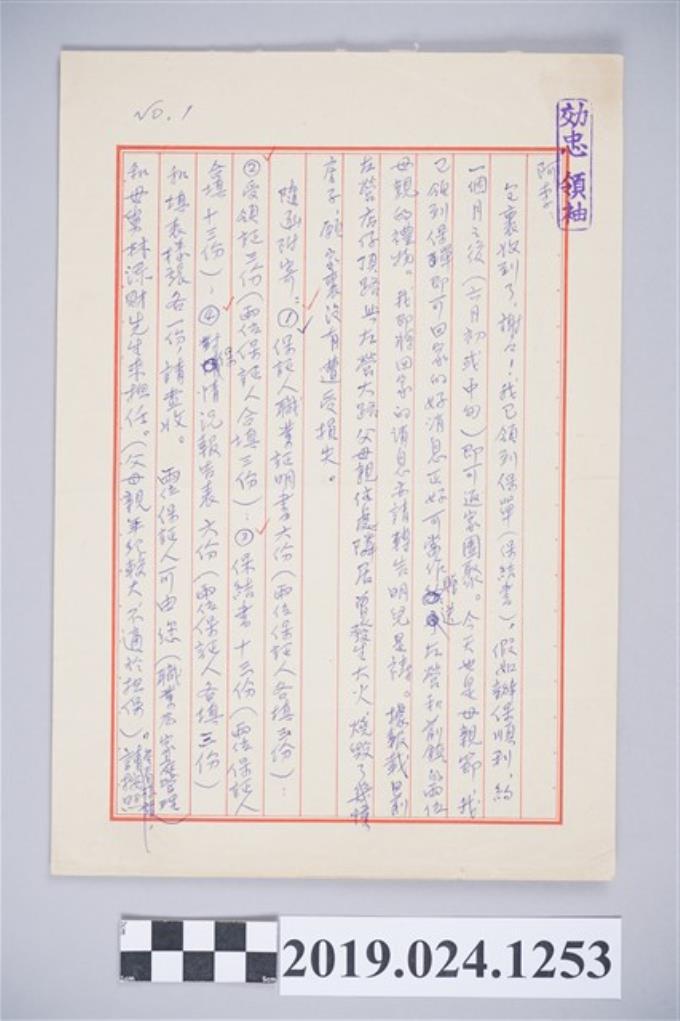 NO. 1
効忠領袖
阿李
包裹收到了，謝々！我已領到保單（保結書），假如辦保順利，約
一個月之後（六月初或中旬）即可返家團聚。今天也是母親節，我
已領到保單即可回家的好消息正好可當作贈送左營和前鎮的兩位
母親的禮物。我即將回家的消息亦請轉告明兒是禱。據報載日前
左營店仔頂路與左營大路父母親住處隣居曾發生大火燒毀了幾幢
房子，願家裏沒有遭受損失。
隨函附寄：①保証人職業証明書六份（兩位保証人各填三份）：
②受領証三份（兩位保証人合填三份）：③保結書十三份（兩位保証人
合填十三份）；④對保情況報告表六份（兩位保証人各填三份）
和填表樣張各一份，請查收。　兩位保証人可由您（職業為家庭管理）
和母舅林添財先生來担任。（父母親年紀較大不適於担保）。請按照